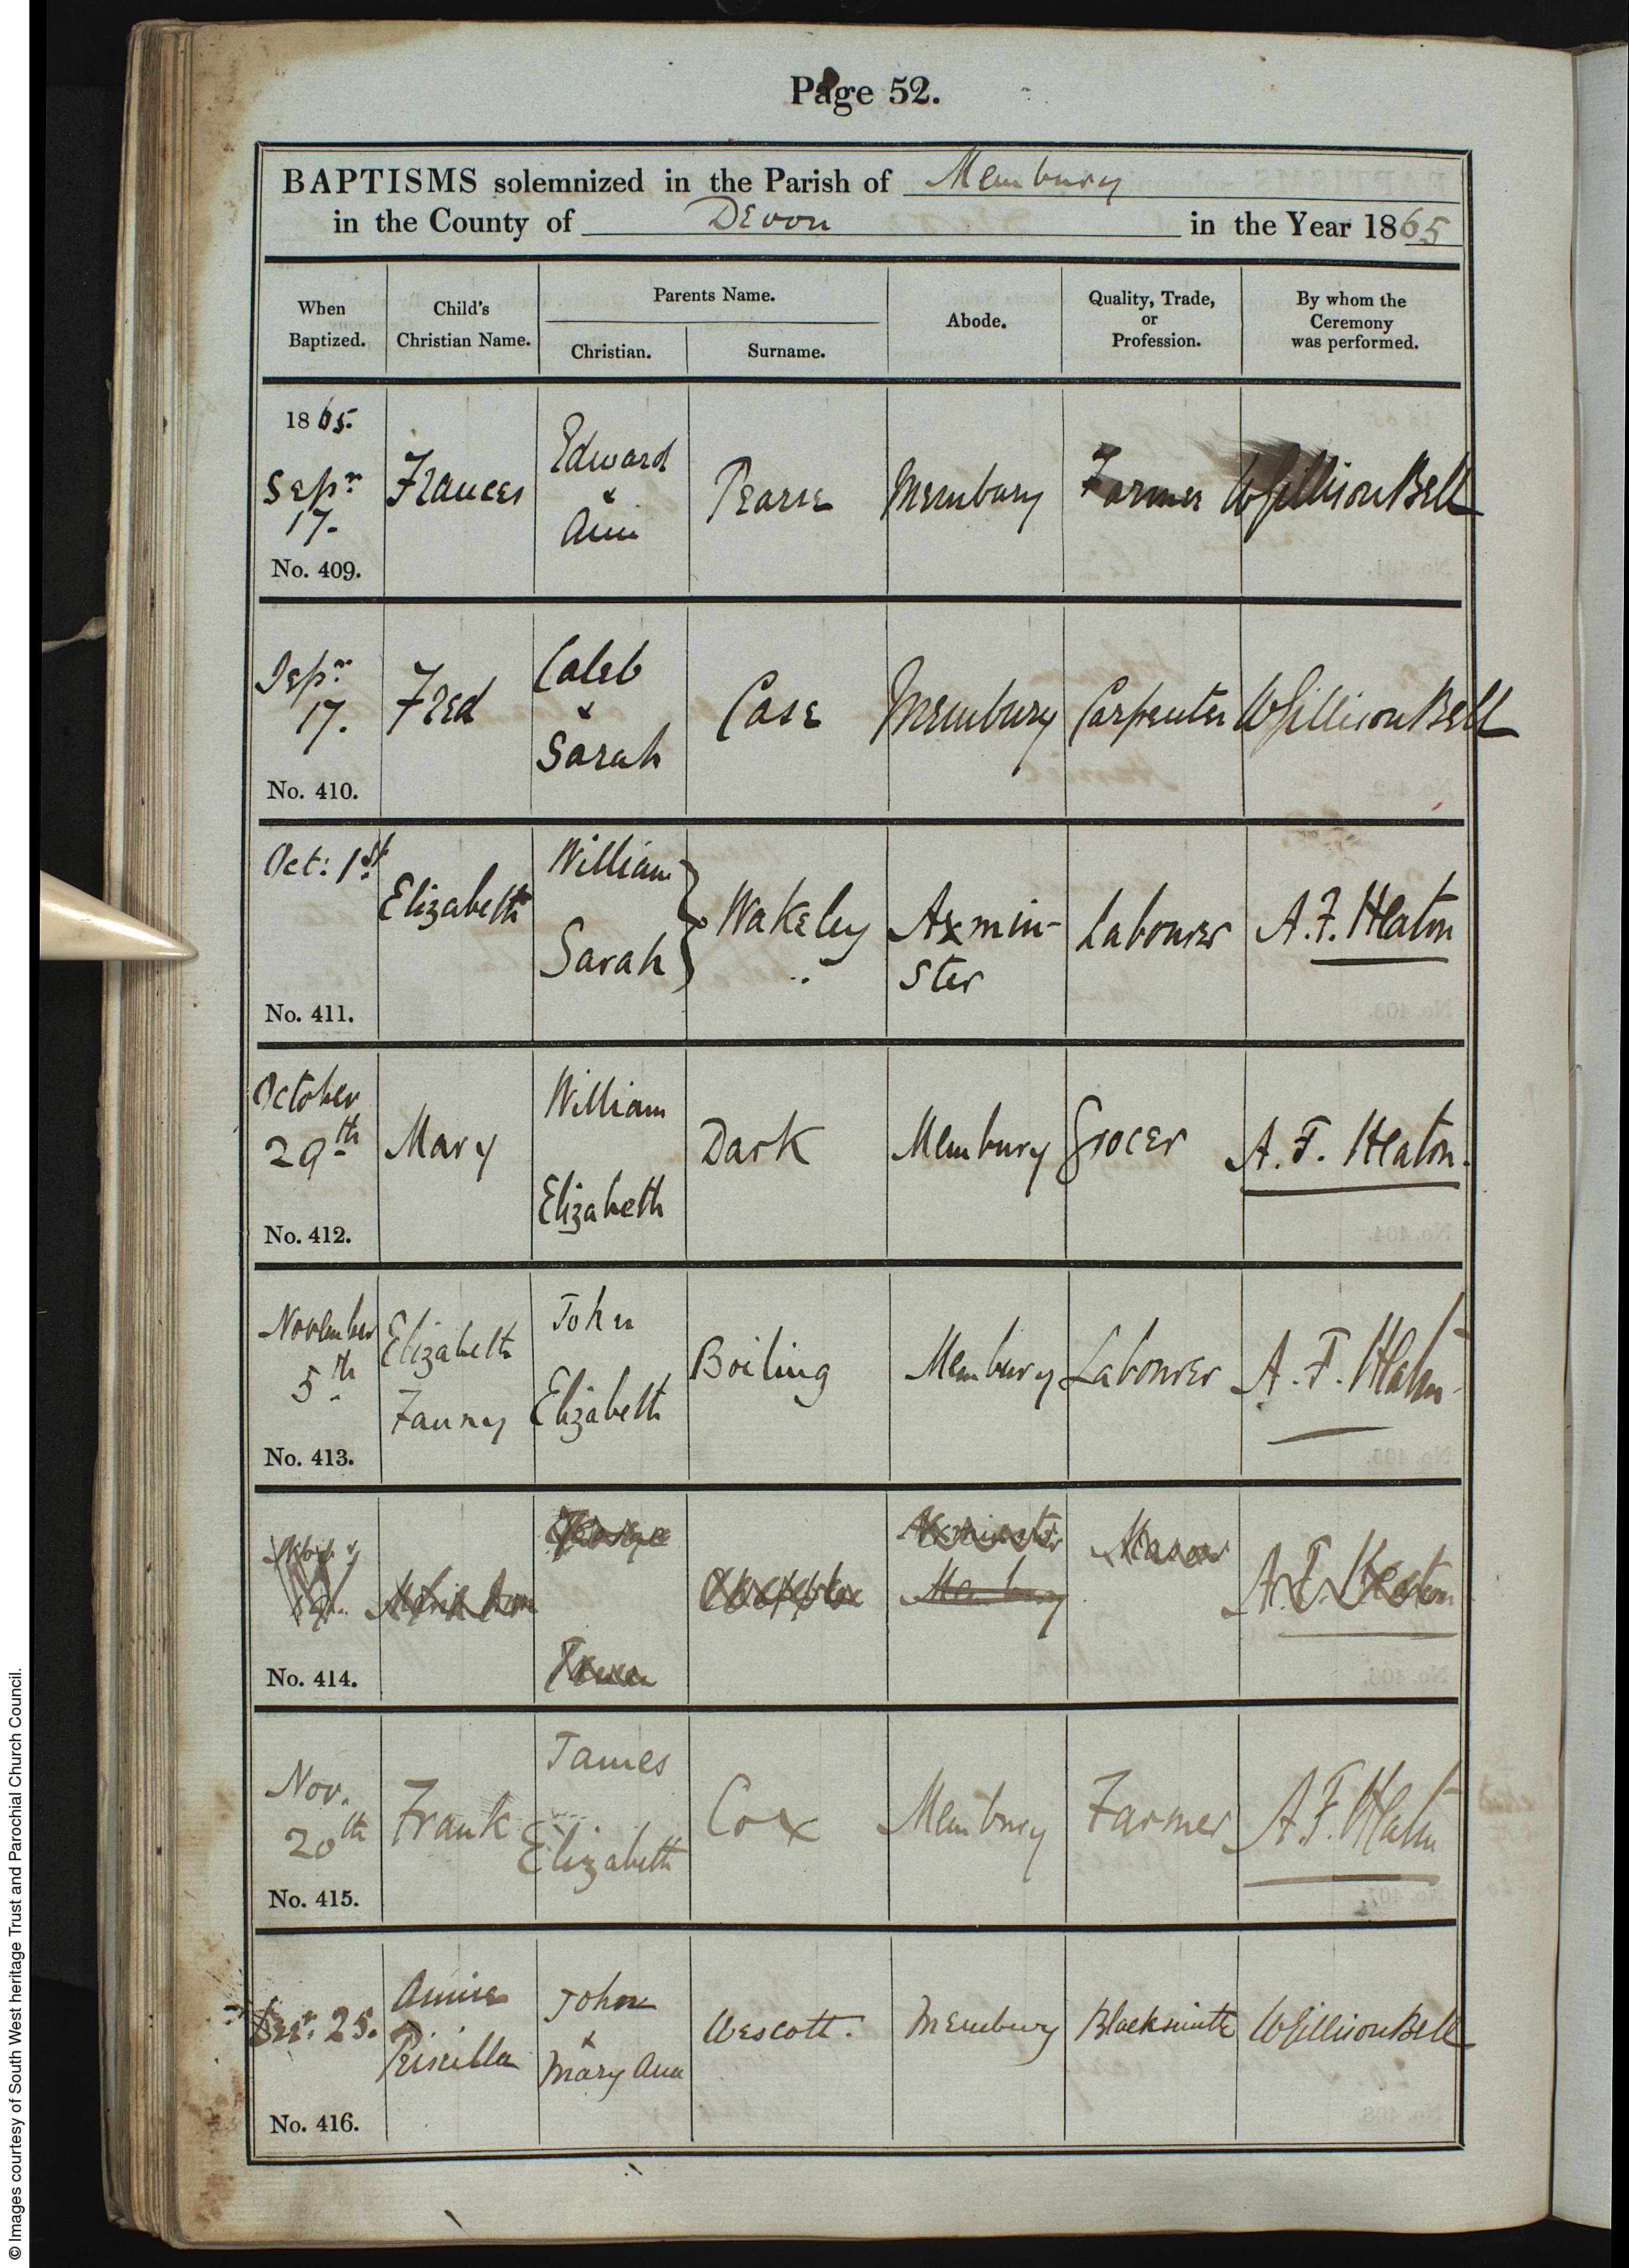 Page 52.
BAPTISMS solemnized in the Parish of Membury
in the County of Devon in the Year 1865
When Baptized.
Child's Christian Name.
Parents Name.
Christian.
Surname.
Abode.
Quality, Trade, or Profession.
By whom the Ceremony was performed.
1865.
Sepr.
17.
No. 409.
Frances
Edward
&
Ann
Pearse
Membury
Farmer
W Gillison Bell
Sepr.
17.
No. 410.
Fred
Caleb
&
Sarah
Case
Membury
Carpenter
W Gillison Bell
Oct: 1st
No. 411.
Elizabeth
William
Sarah
Wakeley
Axmin-
ster
Labourer
A. F. Heaton
October
29th
No. 412.
Mary
William
Elizabeth
Dark
Membury
Grocer
A. F. Heaton.
November
5th
No. 413.
Elizabeth
Fanny
John
Elizabeth
Boiling
Membury
Labourer
A. F. Heaton
No. 414.
Axminster
Membury
Mason
A. F. Heaton
Nov.
20th
No. 415.
Frank
James
Elizabeth
Cox
Membury
Farmer
A F. Heaton
Decr. 25.
No. 416.
Annie
Priscilla
John
&
Mary Ann
Wescott.
Membury
Blacksmith
W Gillison Bell
© Images courtesy of South West heritage Trust and Parochial Church Council.